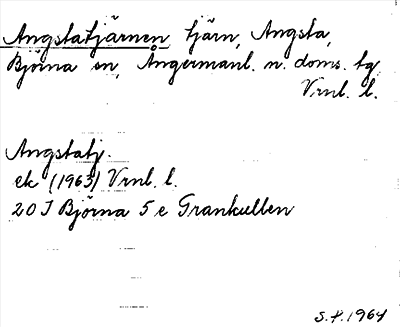 Angstatjärnen tjärn, Angsta,
Björna sn, Ångermanl. n. doms. tg
Vrnl. l.
Angstatj.
ek (1963) Vrnl. l.
20 I Björna 5 e Grankullen
S.F. 1964